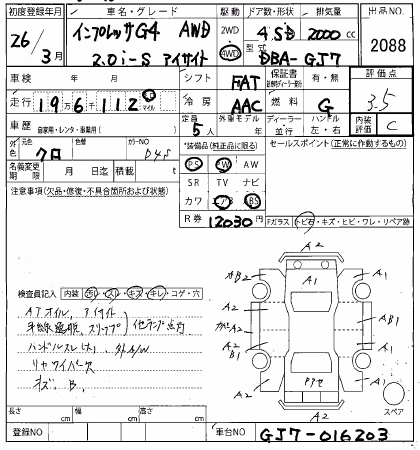 初度登録年月 車名・グレード 駆動 ドア数・形状 排気量 出品NO.
26/3月 インプレッサG4 AWD 2WD 4SD 2000cc
2.0i-S アイサイト 4WD 型式 DBA-GJ7 2088
車検 年 月 シフト FAT 保証書 有・無 評価点
走行 19万6千112 マイル 冷房 AAC 燃料 G 3.5
車歴 自家用・レンタ・事業用( ) 定員 5人 外車モデル 年 ディーラー・並行 ハンドル 左・右 内装評価 C
外色 元色 クロ 色替 カラーNO D4S *装備品(純正品に限る) セールスポイント(正常に作動するもの)
PS PW AW
名義変更期限 月 日迄 積載 t SR TV ナビ
注意事項(欠品・修復・不具合箇所および状態) カワ エアB ABS
R券 12030円 Fガラス トビ石・キズ・ヒビ・ワレ・リペア跡
A2
A2
A1
A1
A2
A2
A1
B1
A1
A2
検査員記入 内装 ヨゴレ・スレ・キズ・キレ・コゲ・穴
ATオイル、アイサイト
ハンドルスレ(大)、外A/W
リヤワイパー
キズ、B、
スペア
長さ cm 幅 cm 高さ cm
登録NO 車台NO GJ7-016203